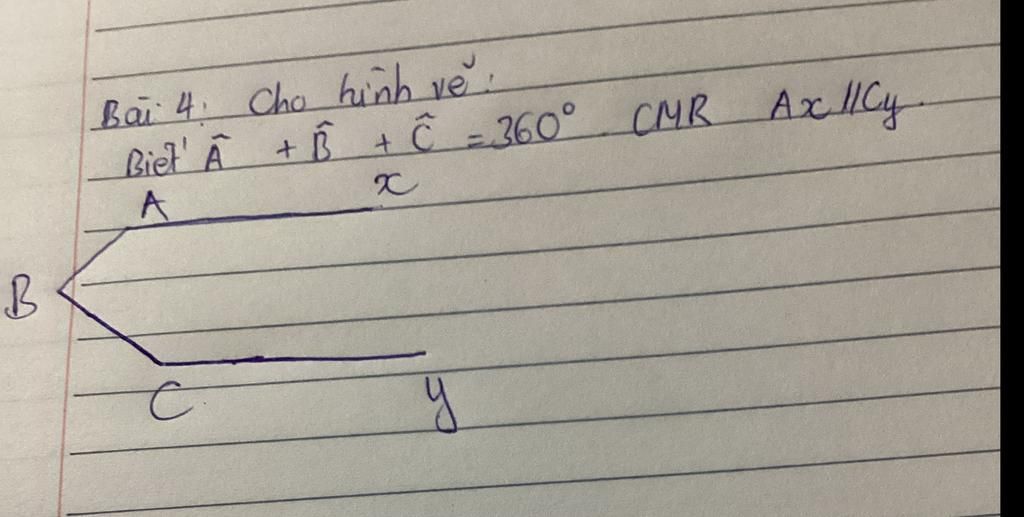 Bài 4: Cho hình vẽ.
Biết Â + B̂ + Ĉ = 360° CMR Ax // Cy.
A x
B
C y